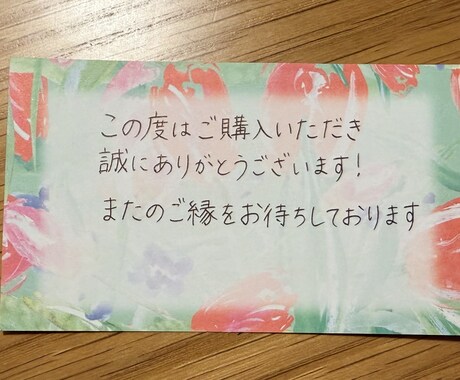 この度はご購入いただき
誠にありがとうございます!
またのご縁をお待ちしております